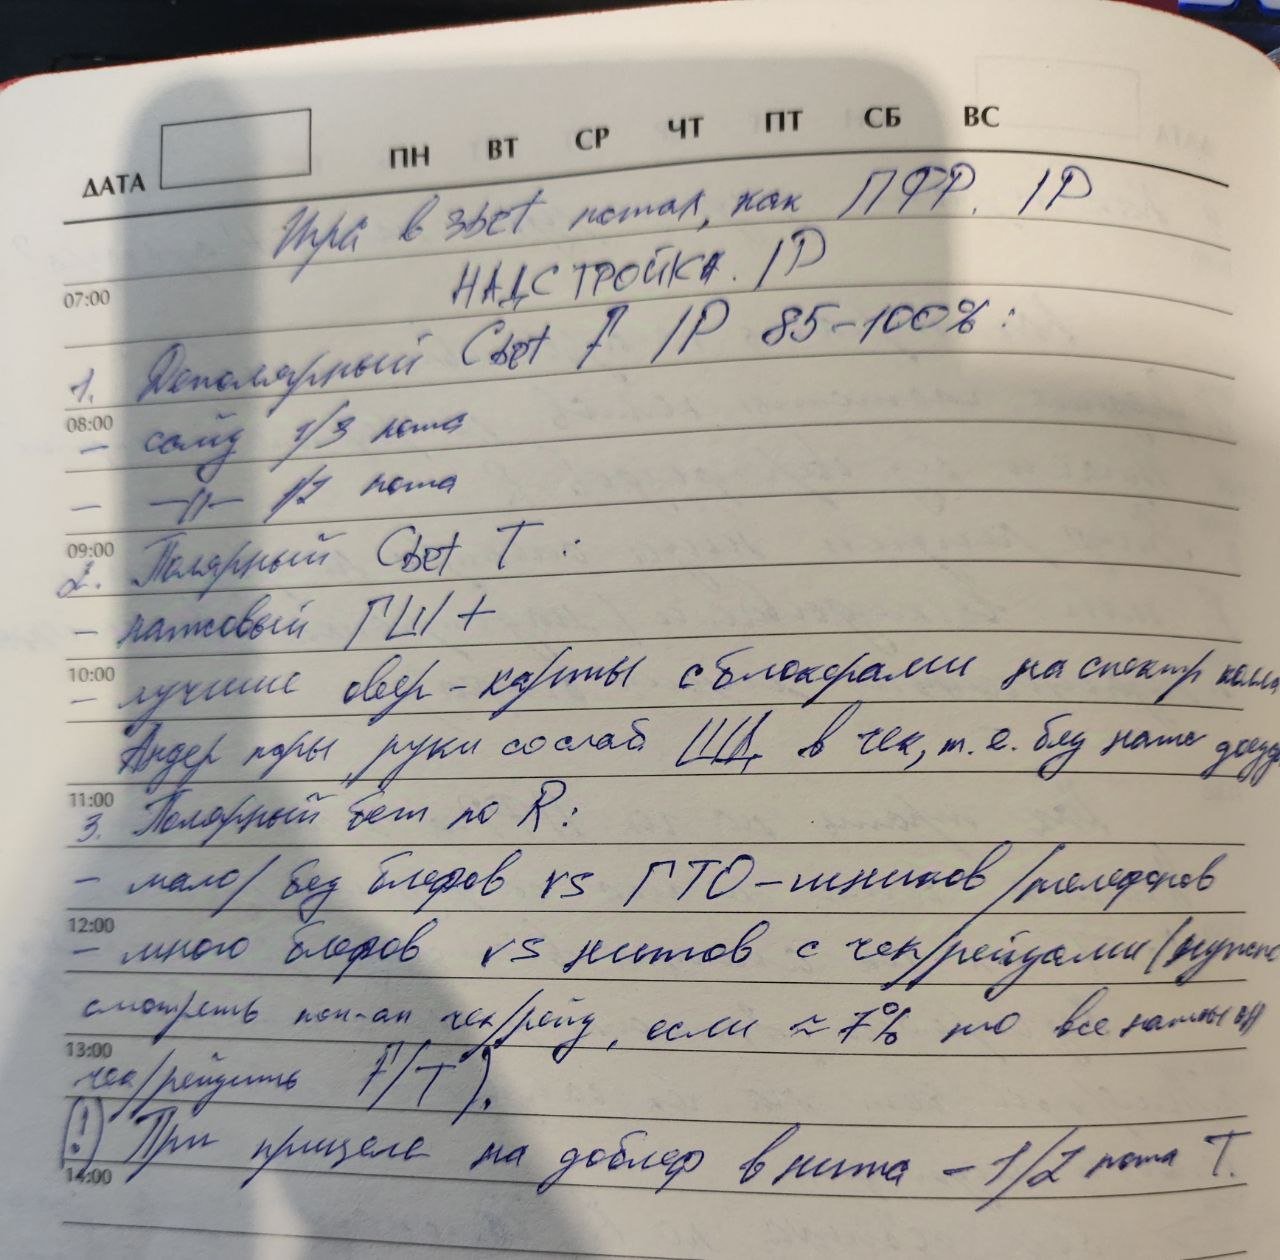 ДАТА ПН ВТ СР ЧТ ПТ СБ ВС
Игра в 3bet потах, как ПФР. IP
07:00 НАДСТРОЙКА. IP
1. Деполярный Cbet F IP 85-100%:
08:00
- сайз 1/3 пота
- -//- 1/2 пота
09:00
2. Полярный Cbet T :
- натсовый ГШ+
10:00
- лучшие овер-карты с блокерами на спектр колла
Андер пары, руки со слаб ШД в чек, т.е. без натс доезда
11:00
3. Полярный бет по R:
- мало/без блефов vs ГТО-шников/телефонов
12:00
- много блефов vs нитов с чек/рейзами (нужно
смотреть поп-ап чек/рейз, если ≈7% то все натсы
13:00
чек/рейзить F/T).
(!) При прицеле на доблеф в нита - 1/2 пота T.
14:00